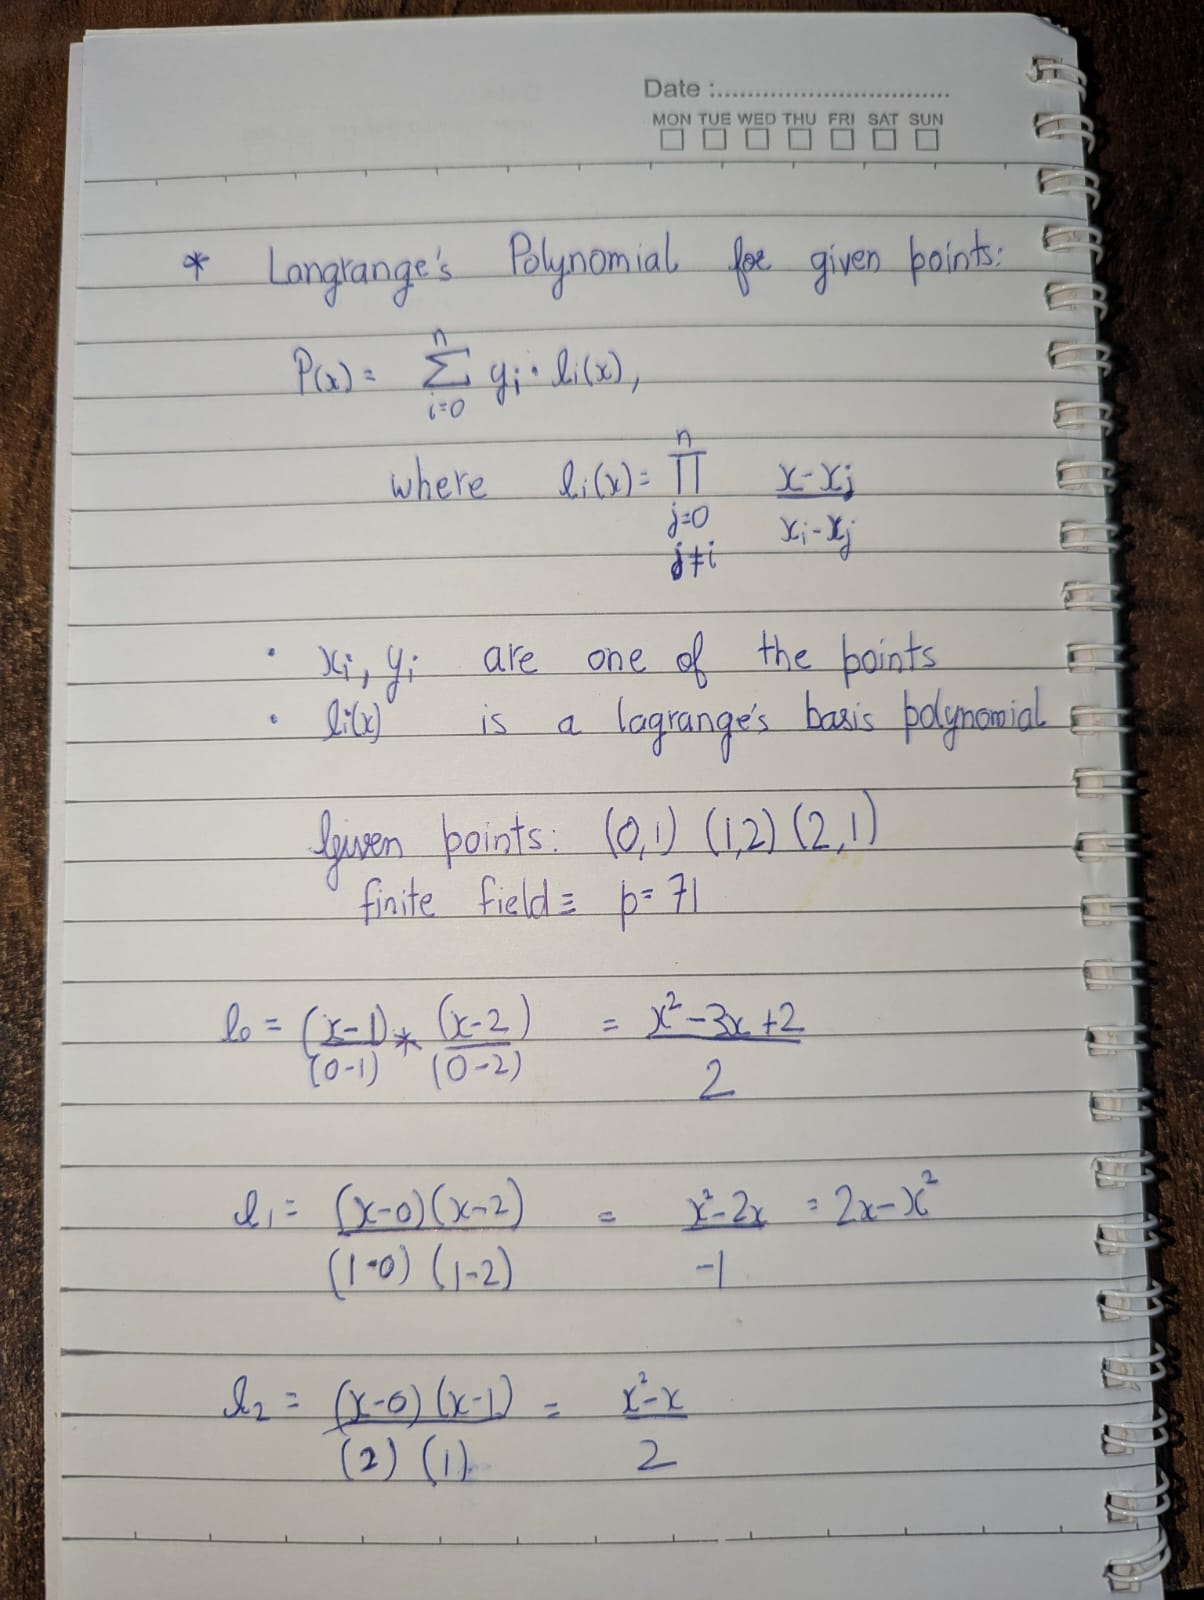 Date :
MON TUE WED THU FRI SAT SUN
* Langrange's Polynomial for given points:
P(x) = n∑i=0 yi • li(x),
where li(x) = n∏j=0 j≠i (x-xj)/(xi-xj)
• xi, yi are one of the points
• li(x) is a lagrange's basis polynomial
Given points: (0,1) (1,2) (2,1)
finite field ≡ p = 71
l0 = (x-1)/(0-1) * (x-2)/(0-2) = (x²-3x+2)/2
l1 = (x-0)(x-2)/(1-0)(1-2) = (x²-2x)/-1 = 2x-x²
l2 = (x-0)(x-1)/(2)(1) = (x²-x)/2